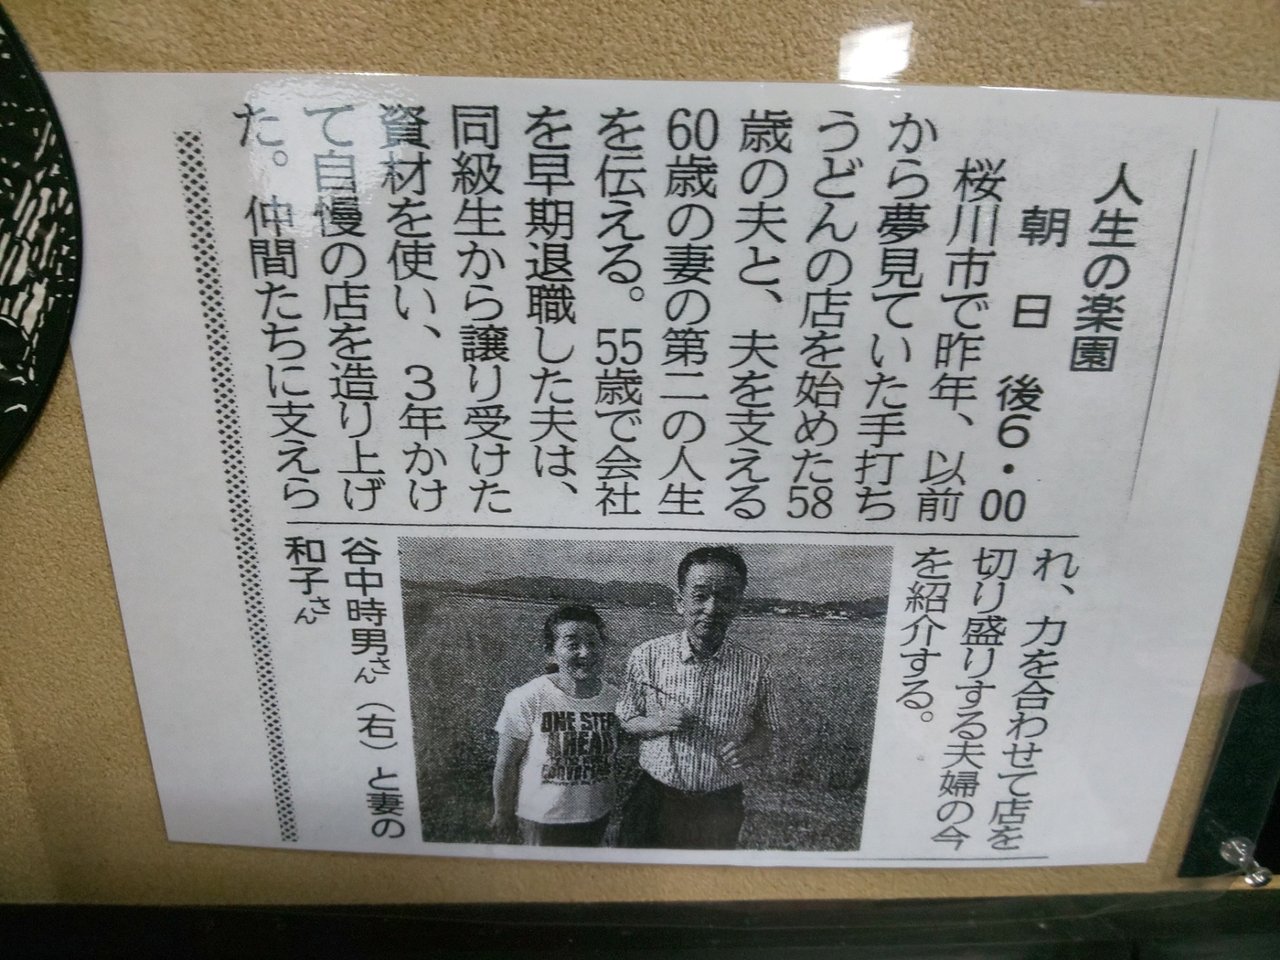 人生の楽園
朝　日　後6・00
桜川市で昨年、以前
から夢見ていた手打ち
うどんの店を始めた58
歳の夫と、夫を支える
60歳の妻の第二の人生
を伝える。55歳で会社
を早期退職した夫は、
同級生から譲り受けた
資材を使い、3年かけ
て自慢の店を造り上げ
た。仲間たちに支えら
れ、力を合わせて店を
切り盛りする夫婦の今
を紹介する。
ONE STEP
AHEAD
谷中時男さん（右）と妻の
和子さん